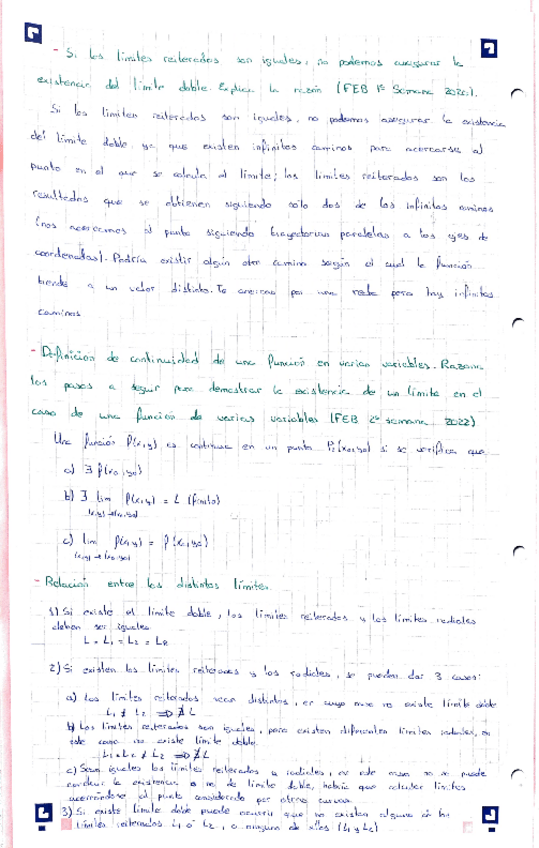 - Si los límites reiterados son iguales, no podemos asegurar la
existencia del límite doble. Explica la razón (FEB 1ª Semana 2020).
Si los límites reiterados son iguales, no podemos asegurar la existencia
del límite doble ya que existen infinitos caminos para acercarse al
punto en el que se calcula el límite; los límites reiterados son los
resultados que se obtienen siguiendo sólo dos de los infinitos caminos
(nos acercamos al punto siguiendo trayectorias paralelas a los ejes de
coordenadas). Podría existir algún otro camino según el cual la función
tiende a un valor distinto. Te acercas por una recta pero hay infinitos
caminos
- Definición de continuidad de una función en varias variables. Razona
los pasos a seguir para demostrar la existencia de un límite en el
caso de una función de varias variables (FEB 2ª semana 2022)
Una función f(x,y) es continua en un punto P=(x₀,y₀) si se verifica que
a) ∃ f(x₀,y₀)
b) ∃ lim f(x,y) = L (finito)
(x,y)→(x₀,y₀)
c) lim f(x,y) = f(x₀,y₀)
(x,y)→(x₀,y₀)
- Relación entre los distintos límites
1) Si existe el límite doble, los límites reiterados y los límites radiales
deben ser iguales
L = L₁ = L₂ = LR
2) Si existen los límites reiterados y los radiales, se pueden dar 3 casos:
a) Los límites reiterados sean distintos, en cuyo caso no existe límite doble
L₁ ≠ L₂ ⇒ ∄ L
b) Los límites reiterados son iguales, pero existen diferentes límites radiales, en
este caso no existe límite doble.
L₁=L₂ ≠ LR ⇒ ∄ L
c) Sean iguales los límites reiterados y radiales, en este caso no se puede
concluir la existencia o no de límite doble, habría que calcular límites
acercándose al punto considerado por otras curvas
3) Si existe límite doble puede ocurrir que no existan alguno de los
límites reiterados L₁ o L₂, o ninguno de ellos (L₁ y L₂)